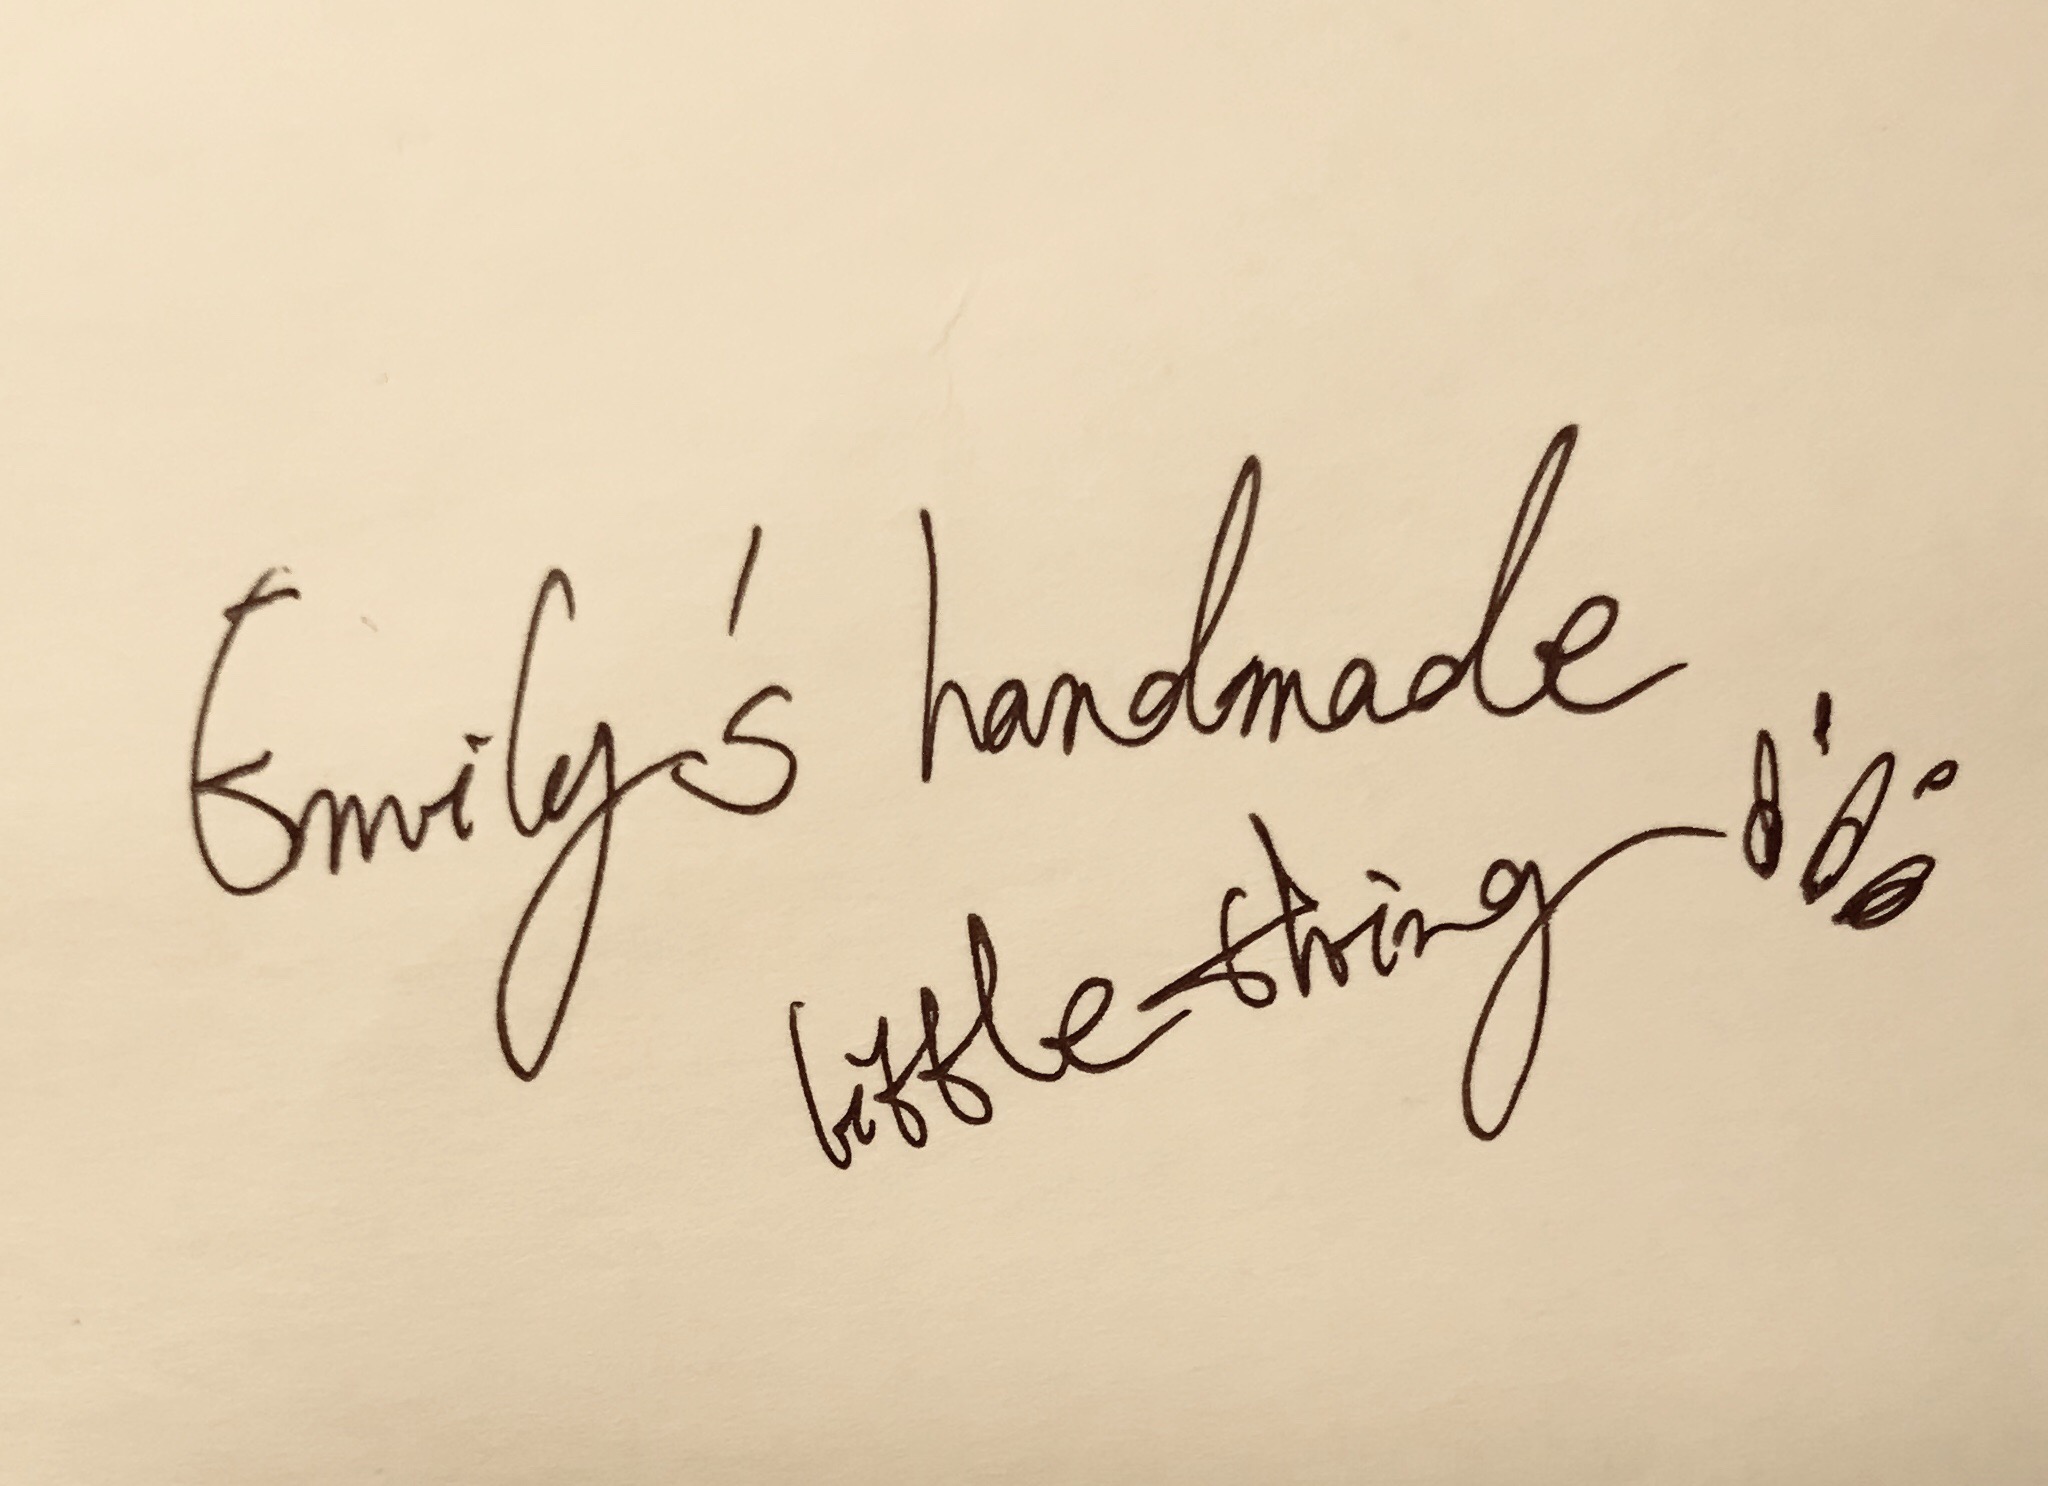 Emily's handmade
little-string